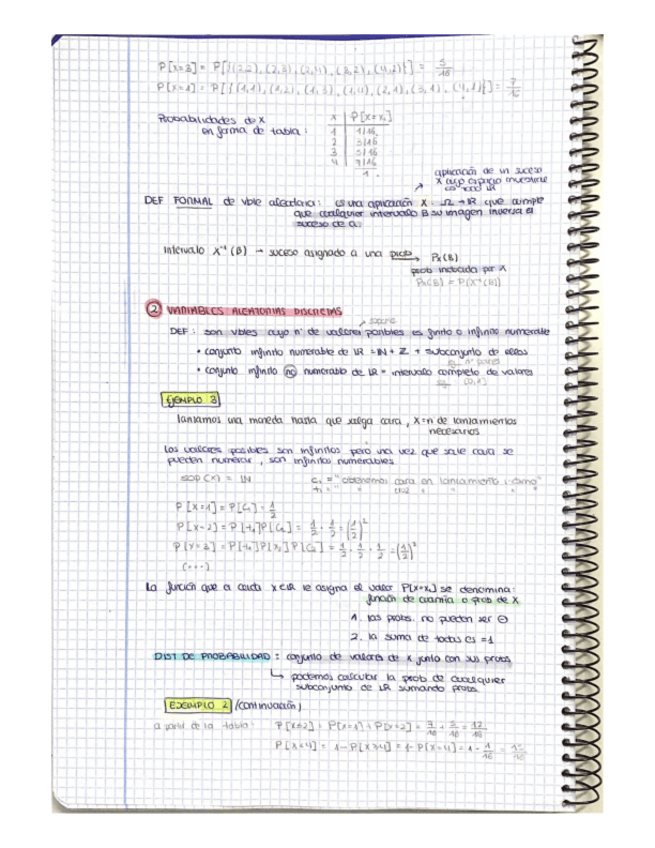 P[X=3] = P[{(2,2), (2,3), (2,4), (3,2), (4,2)}] = 5/16
P[X=4] = P[{(1,1), (1,2), (1,3), (1,4), (2,1), (3,1), (4,1)}] = 7/16
Probabilidades de X
en forma de tabla:
x P[X=xi]
1 1/16
2 3/16
3 5/16
4 7/16
1
aplicación de un suceso
X cuyo espacio
es todo IR
DEF FORMAL de vble aleatoria: es una aplicación X: Ω→IR que cumple
que cualquier intervalo B su imagen inversa es
suceso de a
Intervalo X⁻¹(B) → suceso asignado a una prob → Px(B)
prob inducida por X
Px(B) = P(X⁻¹(B))
2 VARIABLES ALEATORIAS DISCRETAS
soporte
DEF: son vbles cuyo nº de valores posibles es finito o infinito numerable
• conjunto infinito numerable de IR = IN + Z + subconjunto de ellos
nº pares
• conjunto infinito no numerable de IR = intervalo completo de valores
eg [0,1]
EJEMPLO 3
lanzamos una moneda hasta que salga cara, X=n de lanzamientos
necesarios
Los valores posibles son infinitos pero una vez que sale cara se
pueden numerar, son infinitos numerables
sop(x) = IN
ci = "obtenemos cara en lanzamiento i-ésimo"
+i = " " cruz " " "
P[X=1] = P[C1] = 1/2
P[X=2] = P[+1]P[C2] = 1/2 · 1/2 = (1/2)²
P[X=3] = P[+1]P[+2]P[C3] = 1/2 · 1/2 · 1/2 = (1/2)³
(...)
La función que a cada x∈IR le asigna el valor P[X=xi] se denomina:
función de cuantía o prob de X
1. las probs. no pueden ser ⊖
2. la suma de todas es =1
DIST DE PROBABILIDAD: conjunto de valores de X junto con sus probs
↳ podemos calcular la prob de cualquier
subconjunto de IR sumando probs.
EJEMPLO 2 (continuación)
a partir de la tabla: P[X≤2] = P[X=1] + P[X=2] = 7/16 + 5/16 = 12/16
P[X<4] = 1-P[X≥4] = 1-P[X=4] = 1-1/16 = 15/16